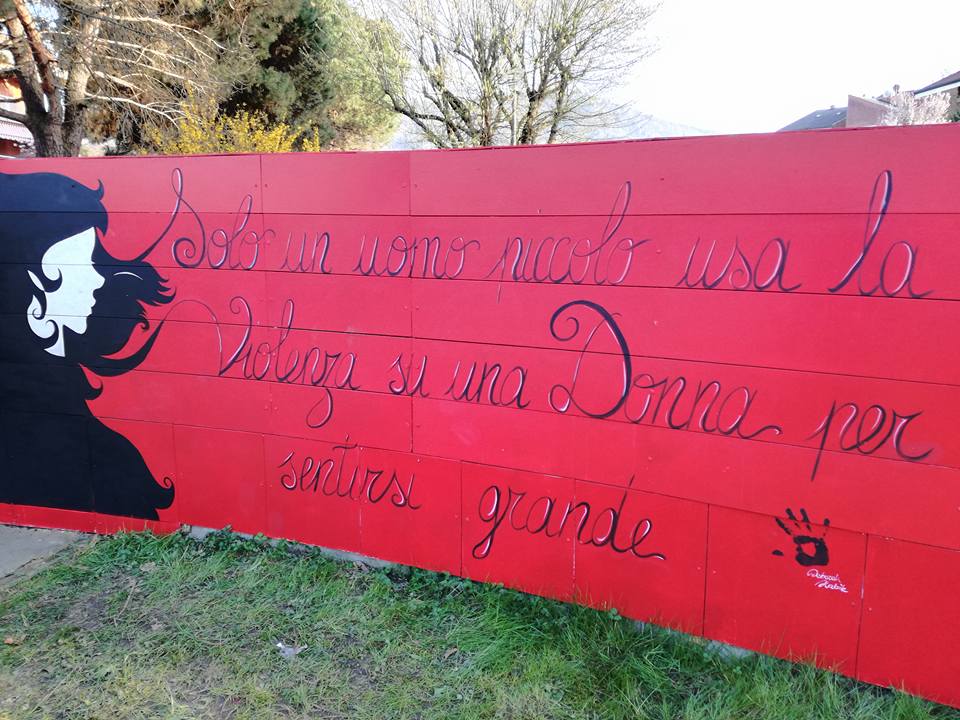 Solo un uomo piccolo usa la
Violenza su una Donna per
sentirsi grande